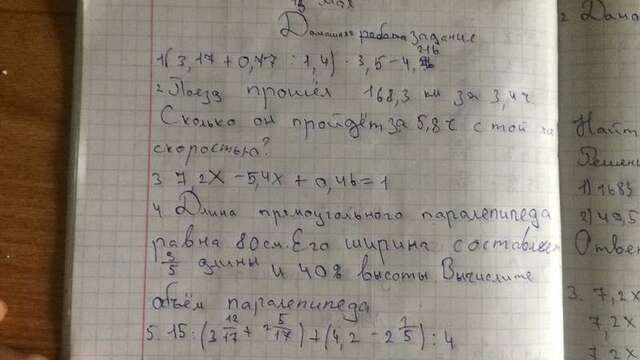 13 мая
Домашняя работа задание
1(3,17 + 0,77 : 1,4) · 3,5 - 4,216
2. Поезд прошёл 168,3 км за 3,4 ч
Сколько он пройдёт за 5,8 ч с той
скоростью?
3. 7,2x - 5,4x + 0,46 = 1
4. Длина прямоугольного паралепипеда
равна 80 см. Его ширина составляет
3/5 длины и 40% высоты. Вычислите
объём паралепипеда
5. 15 : (3 12/17 + 2 5/17) + (4,2 - 2 1/5) : 4
2
Найт
Решени
1) 168,3
2) 49,5
Ответ
3. 7,2x
7,2x
7,2x